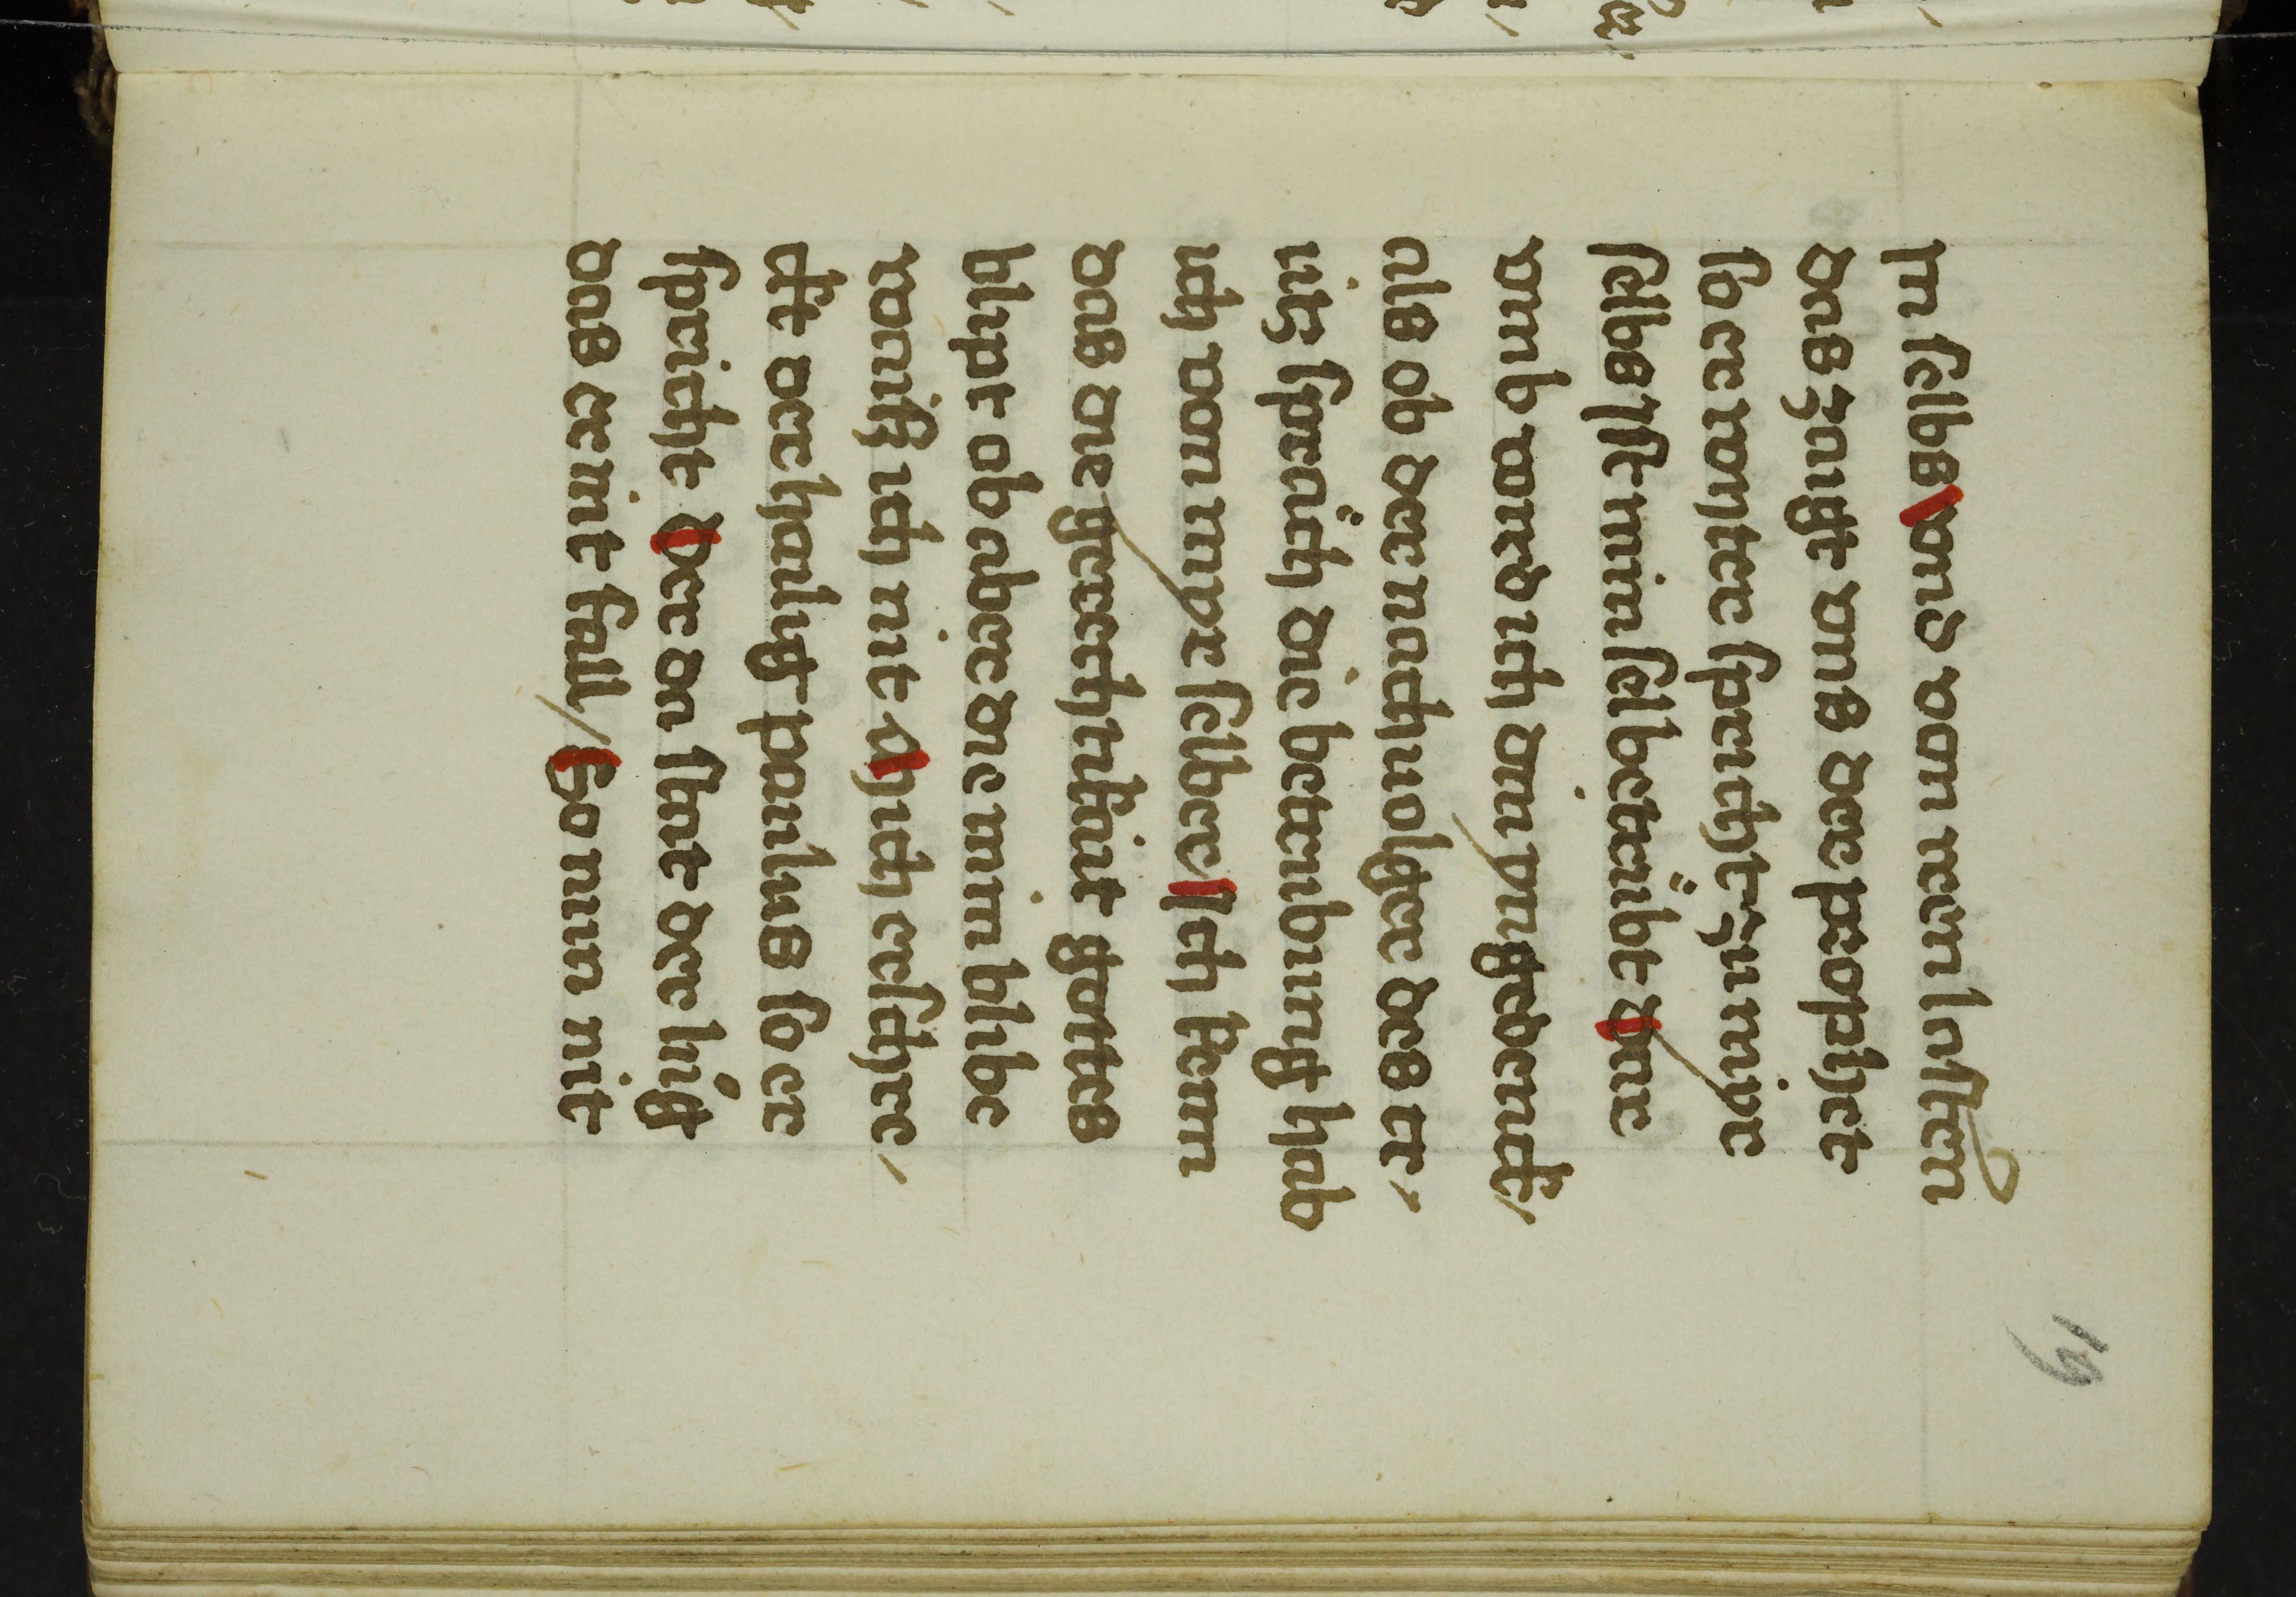 jn selbs vnd von iren lasten
das zugt vns der prophet
so er wyter spricht zu mir
selbs jst min sel betrübt dar
vmb würd ich din yngedenck /
als ob der nachuolger des cr /
ütz spräch die betrübung hab
ich von mir selber Ich kenn
das die gerechtikait gottes
blipt ob aber die min blibe
waiß ich nit Mich erschre /
ckt der hailig paulus so er
spricht Der da stat der lůg
das er nit fall / So nun nit
19